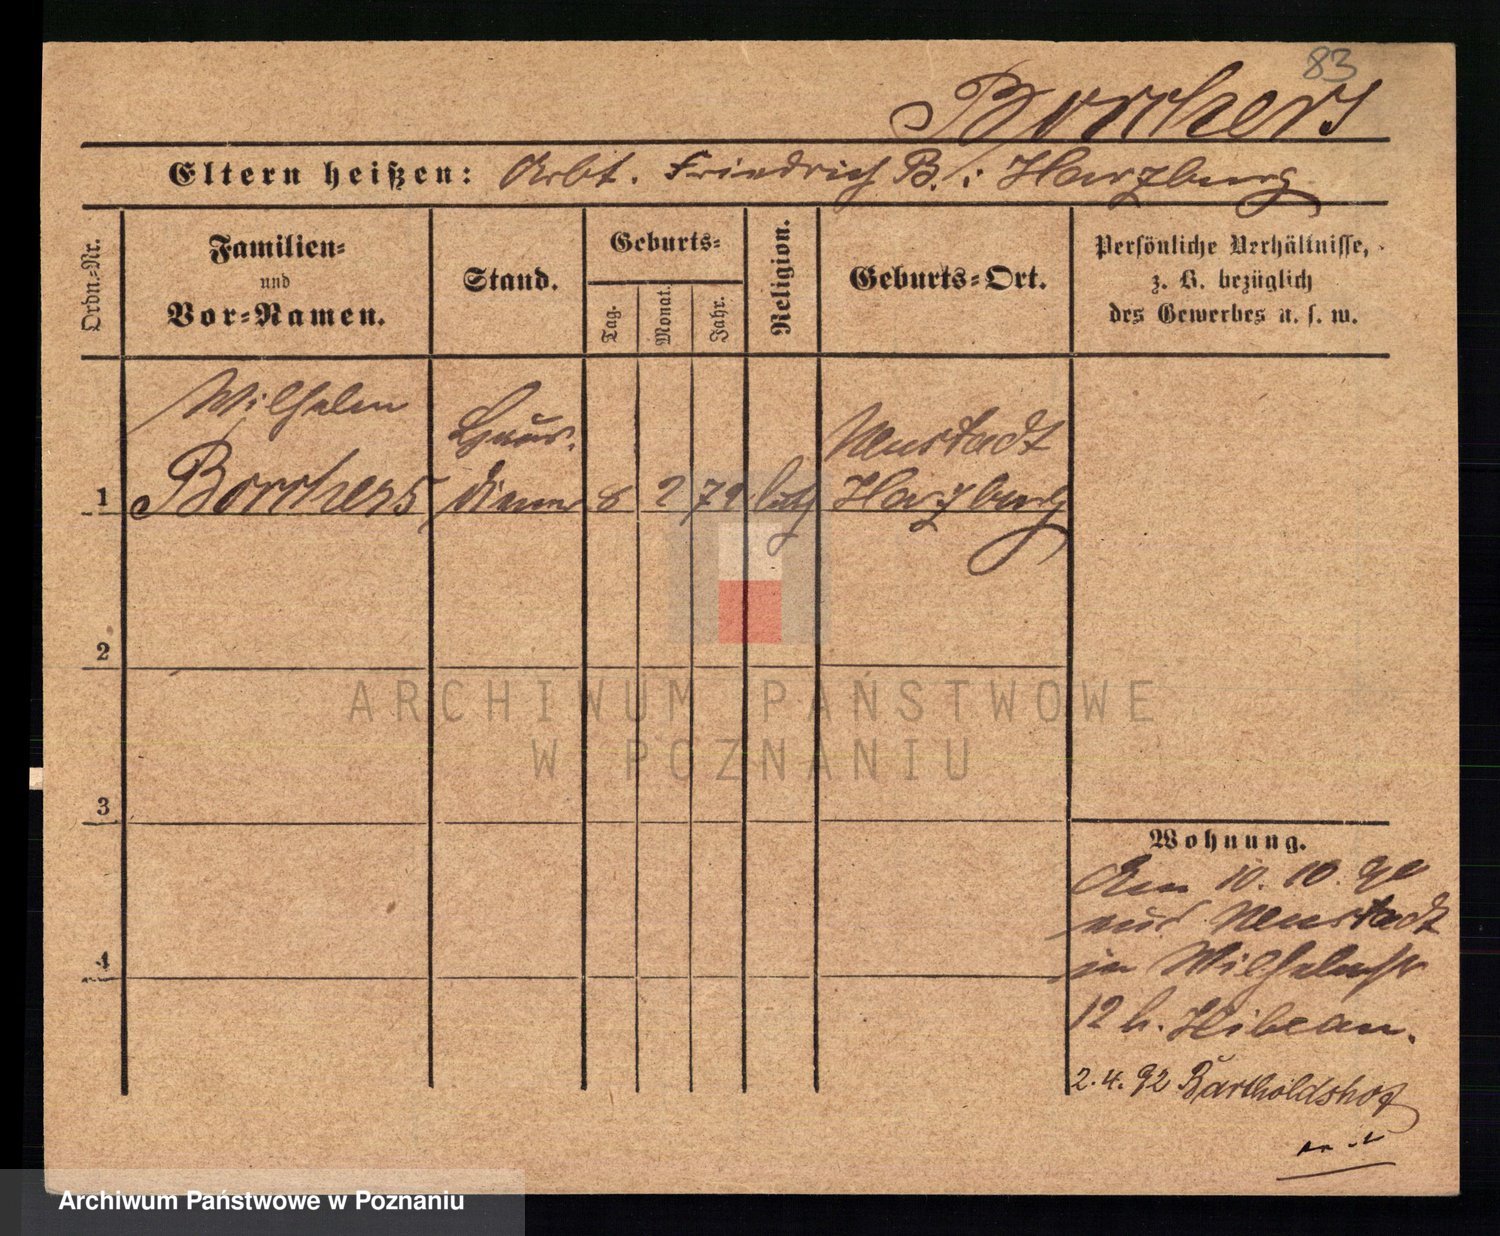 83
Borchers
Eltern heißen: Arbt. Friedrich B. i. Harzburg
Ordn.-Nr.
Familien-
und
Vor-Namen.
Stand.
Geburts-
Tag.
Monat.
Jahr.
Religion.
Geburts-Ort.
Persönliche Verhältnisse,
z. B. bezüglich
des Gewerbes u. s. w.
Wilhelm
Borchers
Haus-
diener
1
8
2
72
luth
Neustadt
Harzburg
2
3
4
Wohnung.
Am 10. 10. 90
aus Neustadt
in Wilhelmstr
12 b.
2.4.92 Bartholdshof
ARCHIWUM PAŃSTWOWE
W POZNANIU
Archiwum Państwowe w Poznaniu